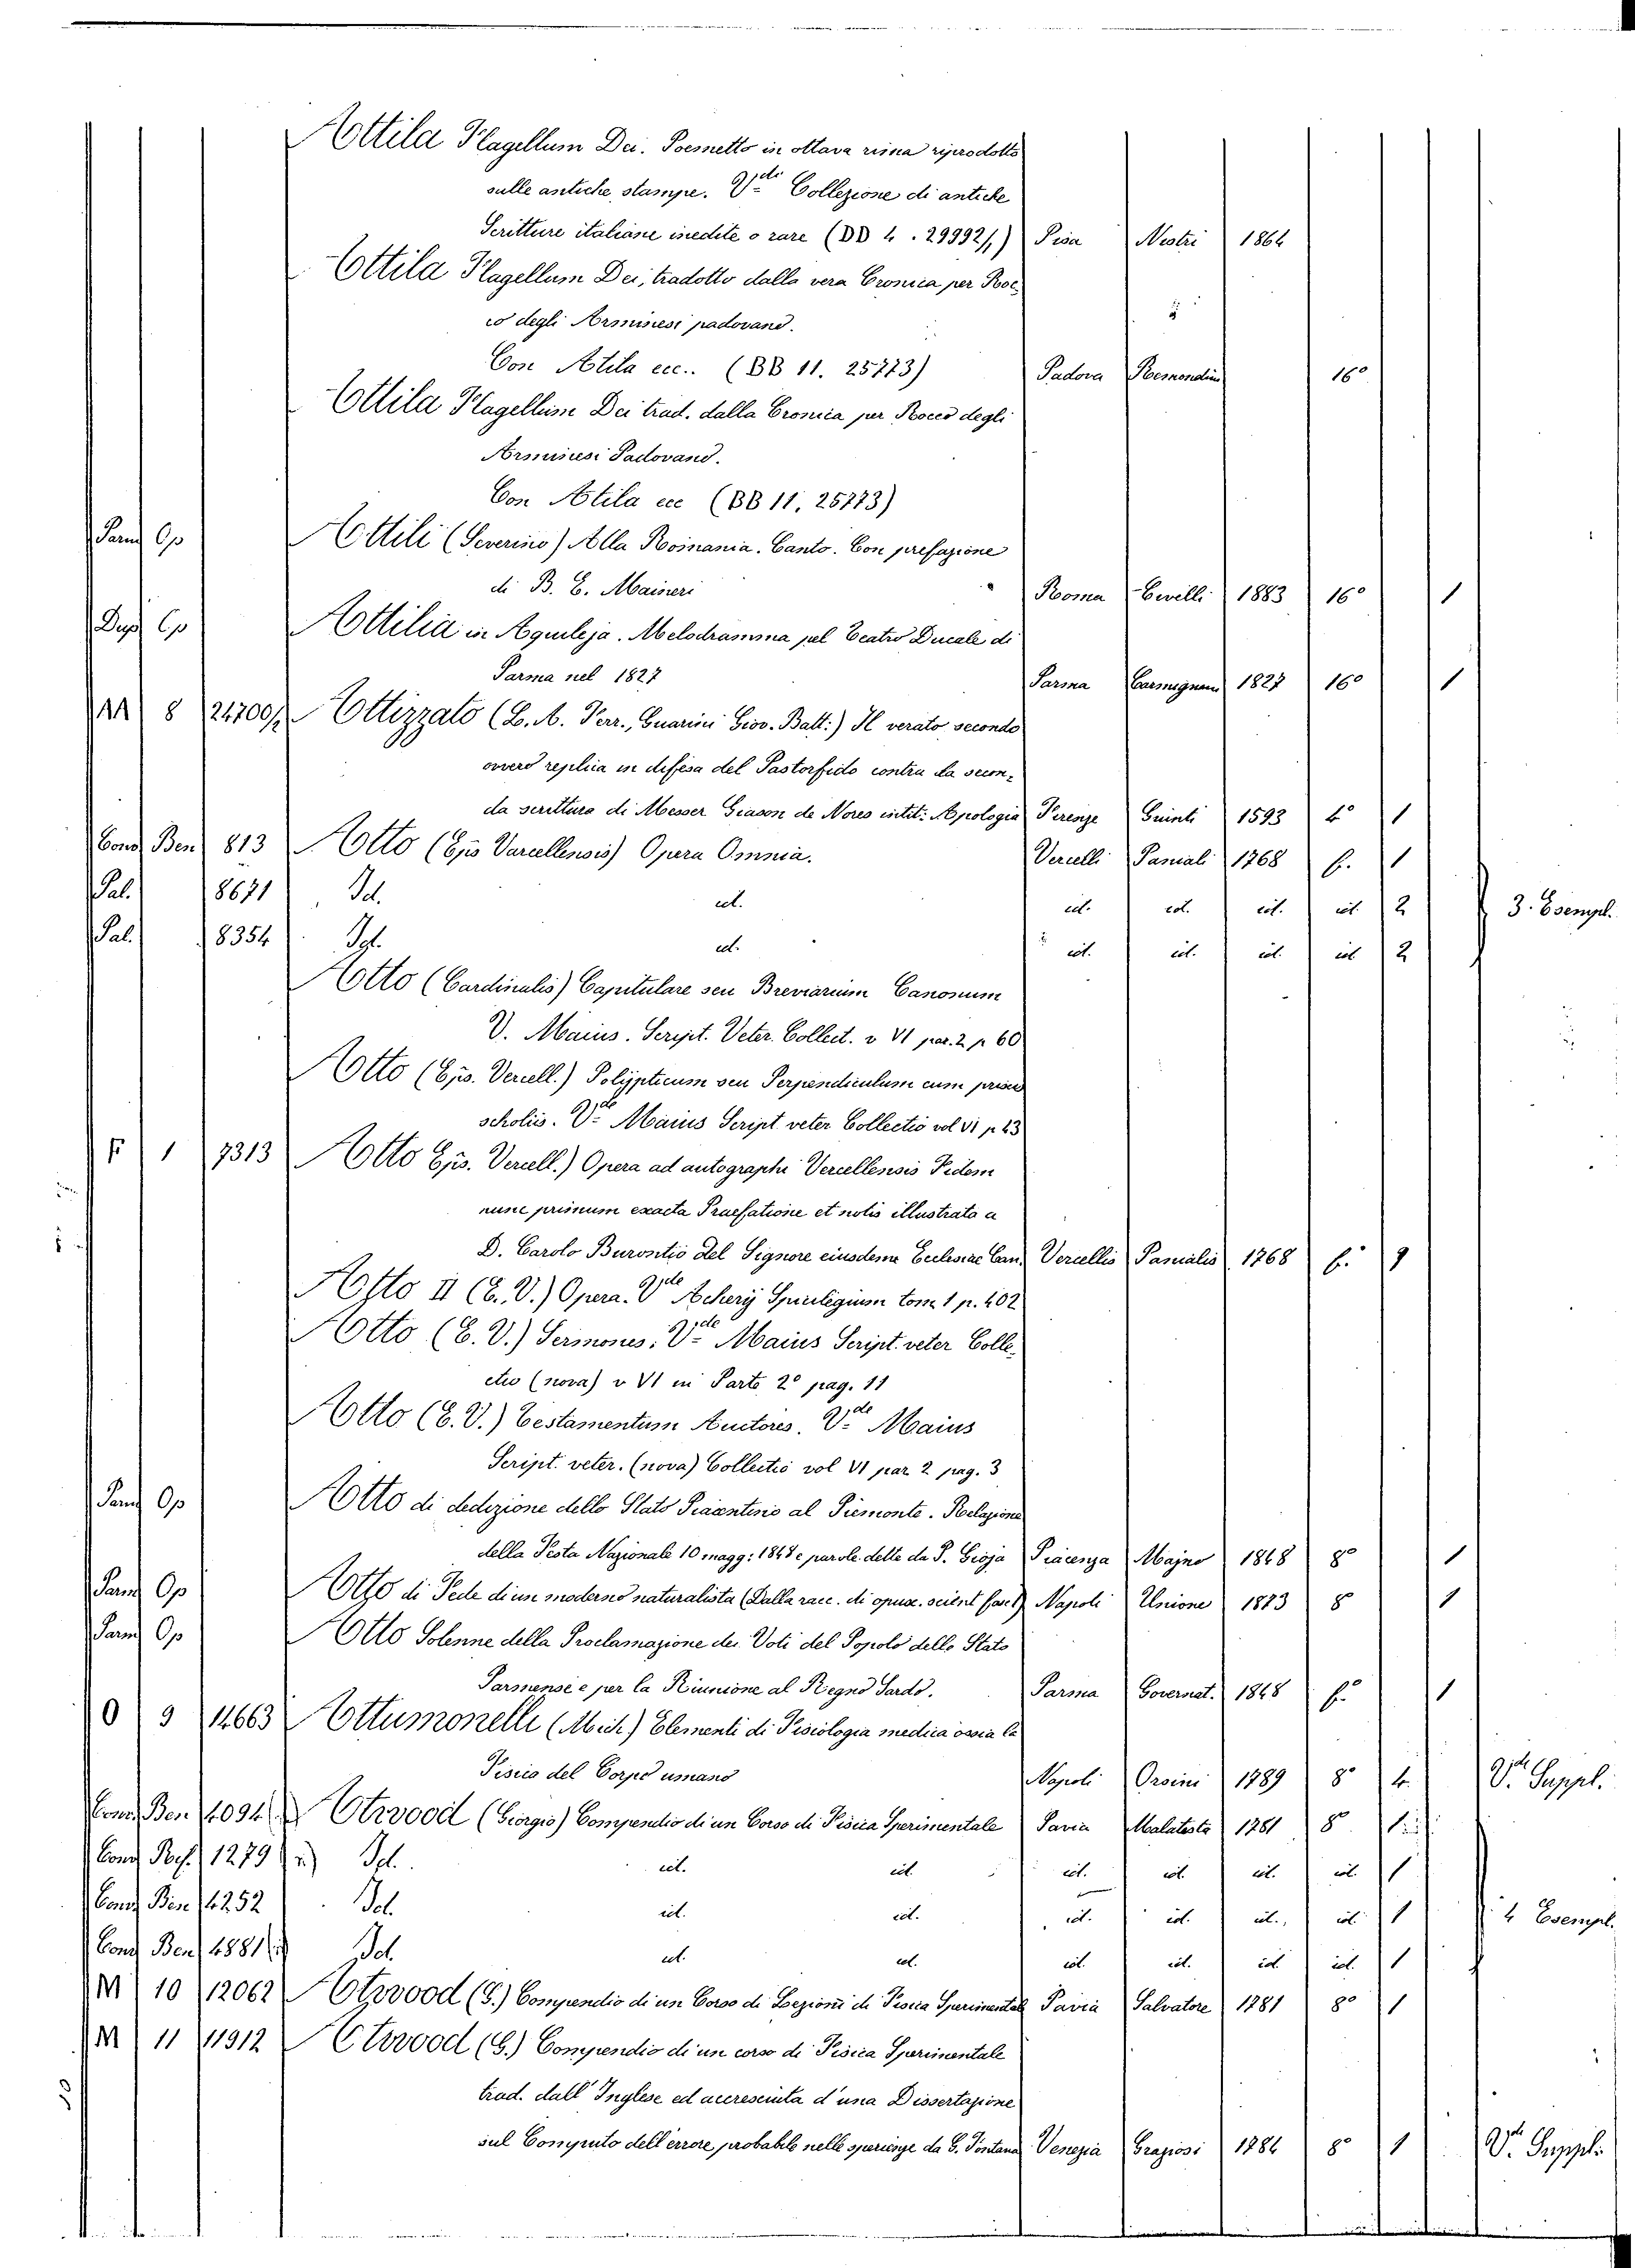 Attila Flagellum Dei. Poemetto in ottava rima riprodotto
sulle antiche stampe. V.de Collezione di antiche
Scritture italiane inedite o rare (DD 4. 29992/1) Pisa Nistri 1864
Attila Flagellum Dei, tradotto dalla vera Cronica per Roc-
co degli Arminesi padovano.
Con Atila ecc.. (BB 11. 25773) Padova Remondini 16°
Attila Flagellum Dei trad. dalla Cronica per Rocco degli
Arminesi Padovano.
Con Atila ecc (BB 11. 25773)
Parm Op Attili (Severino) Alla Romania. Canto. Con prefazione
di B. E. Maineri Roma Civelli 1883 16° 1
Dup Op Attilia in Aquileja. Melodramma pel Teatro Ducale di
Parma nel 1827 Parma Carmignani 1827 16° 1
AA 8 24700/2 Attizzato (L. A. Ferr., Guarini Giov. Batt:) Il verato secondo
ovvero replica in difesa del Pastorfido contra la secon-
da scrittura di Messer Giason de Nores intit: Apologia Firenze Giunti 1593 4° 1
Cond Ben 813 Atto (Eps Varcellensis) Opera Omnia. Vercelli Paniali 1768 f. 1
Pal. 8671 Id. id. id. id. id. id. 2 3. Esempl.
Pal. 8354 Id. id. id. id. id. id. 2
Atto (Cardinalis) Capitulare seu Breviarium Canonum
V. Maius. Script. Veter. Collect. v VI par. 2 p 60
Atto (Eps. Vercell.) Polypticum seu Perpendiculum cum
scholiis. V.de Maius Script veter Collectio vol VI p 43
F 1 7313 Atto Eps. Vercell.) Opera ad autographi Vercellensis Fidem
nunc primum exacta Praefatione et notis illustrata a
D. Carolo Burontio del Signore eiusdem Ecclesiae Can. Vercellis Panialis 1768 f. 1
Atto II (E. V.) Opera. V.de Achery Spicilegium tom. 1 p. 402
Atto (E. V.) Sermones. V.de Maius Script. veter Colle-
ctio (nova) v VI in Parte 2° pag. 11
Atto (E. V.) Testamentum Auctores. V.de Maius
Script. veter. (nova) Collectio vol VI par 2 pag. 3
Parm Op Atto di dedizione dello Stato Piacentino al Piemonte. Relazione
della Festa Nazionale 10 magg: 1848 e parole dette da P. Gioja Piacenza Majno 1848 8° 1
Parm Op Atto di Fede di un moderno naturalista (Dalla racc. di opusc. scient Napoli Unione 1873 8 1
Parm Op Atto Solenne della Proclamazione dei Voti del Popolo dello Stato
Parmense e per la Riunione al Regno Sardo. Parma Governat. 1848 f. 1
O 9 14663 Attumonelli (Mich.) Elementi di Fisiologia medica ossia la
Fisica del Corpo umano Napoli Orsini 1789 8° 4. V.de Suppl.
Cond Ben 4094 Atwood (Giorgio) Compendio di un Corso di Fisica Sperimentale Pavia Malatesta 1781 8°
Cond Raf. 1279 Id. id. id. id. id. id. id. 1
Cond Ben 4252 Id. id. id. id. id. id. id. 1 4 Esempl.
Cond Ben 4881 Id. id. id. id. id. id. id. 1
M 10 12062 Atwood (G.) Compendio di un Corso di Lezioni di Fisica Sperimentale Pavia Salvatore 1781 8° 1
M 11 11912 Atwood (G.) Compendio di un corso di Fisica Sperimentale
trad. dall' Inglese ed accresciuta d'una Dissertazione
sul Computo dell'errore probabile nelle sperienze da G. Fontana Venezia Graziosi 1784 8° 1 V.de Suppl.